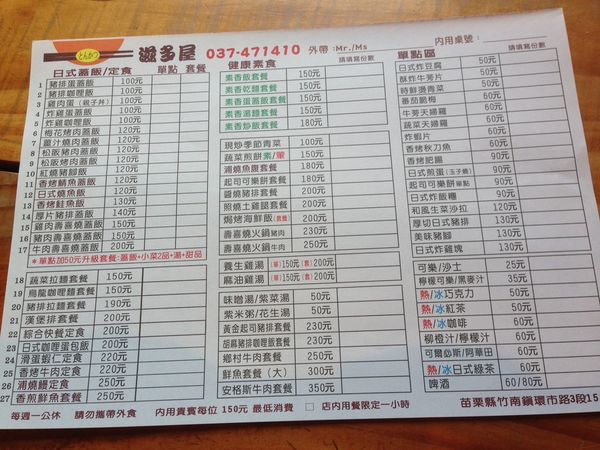 とんかつ
滋多屋 037-471410 外帶:Mr./Ms
內用桌號:
日式蓋飯/定食 單點 套餐
請填寫份數
1 豬排蛋蓋飯 100元
2 豬排咖哩飯 100元
3 雞肉蛋(親子丼) 100元
4 炸雞蛋蓋飯 100元
5 炸雞咖哩飯 100元
6 梅花烤肉蓋飯 120元
7 薑汁燒肉蓋飯 120元
8 松阪豬肉蓋飯 120元
9 松阪豬烤肉飯 120元
10 紅燒豬腳飯 120元
11 香烤鯖魚蓋飯 120元
12 日式燒魚飯 130元
13 香烤鮭魚飯 130元
14 厚片豬排蓋飯 130元
15 豬肉壽喜燒蓋飯 140元
16 豬肉壽喜燒蓋飯 150元
17 牛肉壽喜燒蓋飯 200元
*單點加50元升級套餐:蓋飯+小菜2品+湯+甜品
18 蔬菜拉麵套餐 150元
19 烏龍咖哩麵套餐 150元
20 豬排拉麵套餐 190元
21 漢堡排套餐 200元
22 綜合快餐定食 200元
23 日式咖哩蛋包飯 200元
24 滑蛋蝦仁定食 220元
25 香烤牛肉定食 220元
26 浦燒鰻定食 250元
27 香煎鮮魚套餐 250元
健康素食
請填寫份數
素香飯套餐 150元
素香乾麵套餐 150元
素香蛋蓋飯套餐 150元
素香湯麵套餐 150元
素香炒飯套餐 180元
現炒季節青菜 100元
蔬菜煎餅素/葷 150元
浦燒魚肚套餐 180元
起司可樂餅套餐 180元
鹽燒豬排套餐 200元
照燒土雞腿套餐 200元
焗烤海鮮飯(套餐) 200元
壽喜燒火鍋豬肉 250元
壽喜燒火鍋牛肉 250元
養生雞湯 (單)150元 (套)200元
麻油雞湯 (單)150元 (套)200元
味噌湯/紫菜湯 50元
紫米粥/花生湯 50元
黃金起司豬排套餐 230元
胡麻豬排咖哩飯套餐 230元
鄉村牛肉套餐 250元
鮮魚套餐(大) 300元
安格斯牛肉套餐 350元
單點區
請填寫份數
日式炸豆腐 50元
酥炸牛蒡片 50元
時鮮燙青菜 50元
番茄脆梅 60元
牛蒡天婦羅 60元
蔬菜天婦羅 60元
炸蝦片 60元
香烤秋刀魚 60元
香烤肥腸 60元
日式煎蛋(玉子燒) 60元
起司可樂餅單點 60元
日式炸飯糰 60元
和風生菜沙拉 120元
厚切日式豬排 130元
美味豬腳 130元
日式炸雞塊 130元
可樂/沙士 25元
檸檬可樂/黑麥汁 35元
熱/冰巧克力 50元
熱/冰紅茶 60元
熱/冰咖啡 60元
柳橙汁/檸檬汁 60元
可爾必斯/阿華田 60元
熱/冰日式綠茶 60元
啤酒 60/80元
每週一公休 請勿攜帶外食 內用貴賓每位 150元 最低消費 □ 店內用餐限定一小時
苗栗縣竹南鎮環市路3段15